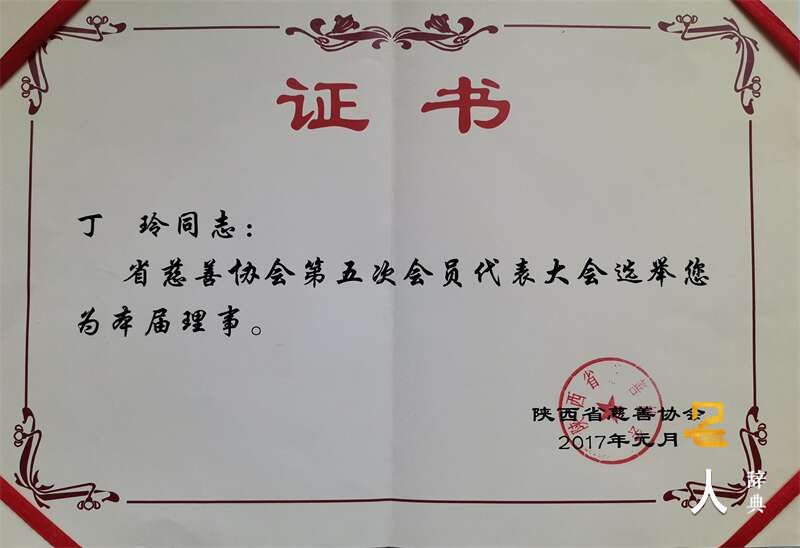 证书
丁 玲同志：
省慈善协会第五次会员代表大会选举您
为本届理事。
陕西省慈善协会
2017年元月
陕西省
人 辞典